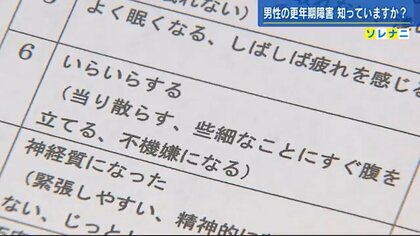 男性の更年期障害 知っていますか?
ソレナニ
れない)
よく眠くなる、しばしば疲れを感じる
6
いらいらする
(当り散らす、些細なことにすぐ腹を
立てる、不機嫌になる)
神経質になった
(緊張しやすい、精神的に
ない、じっと